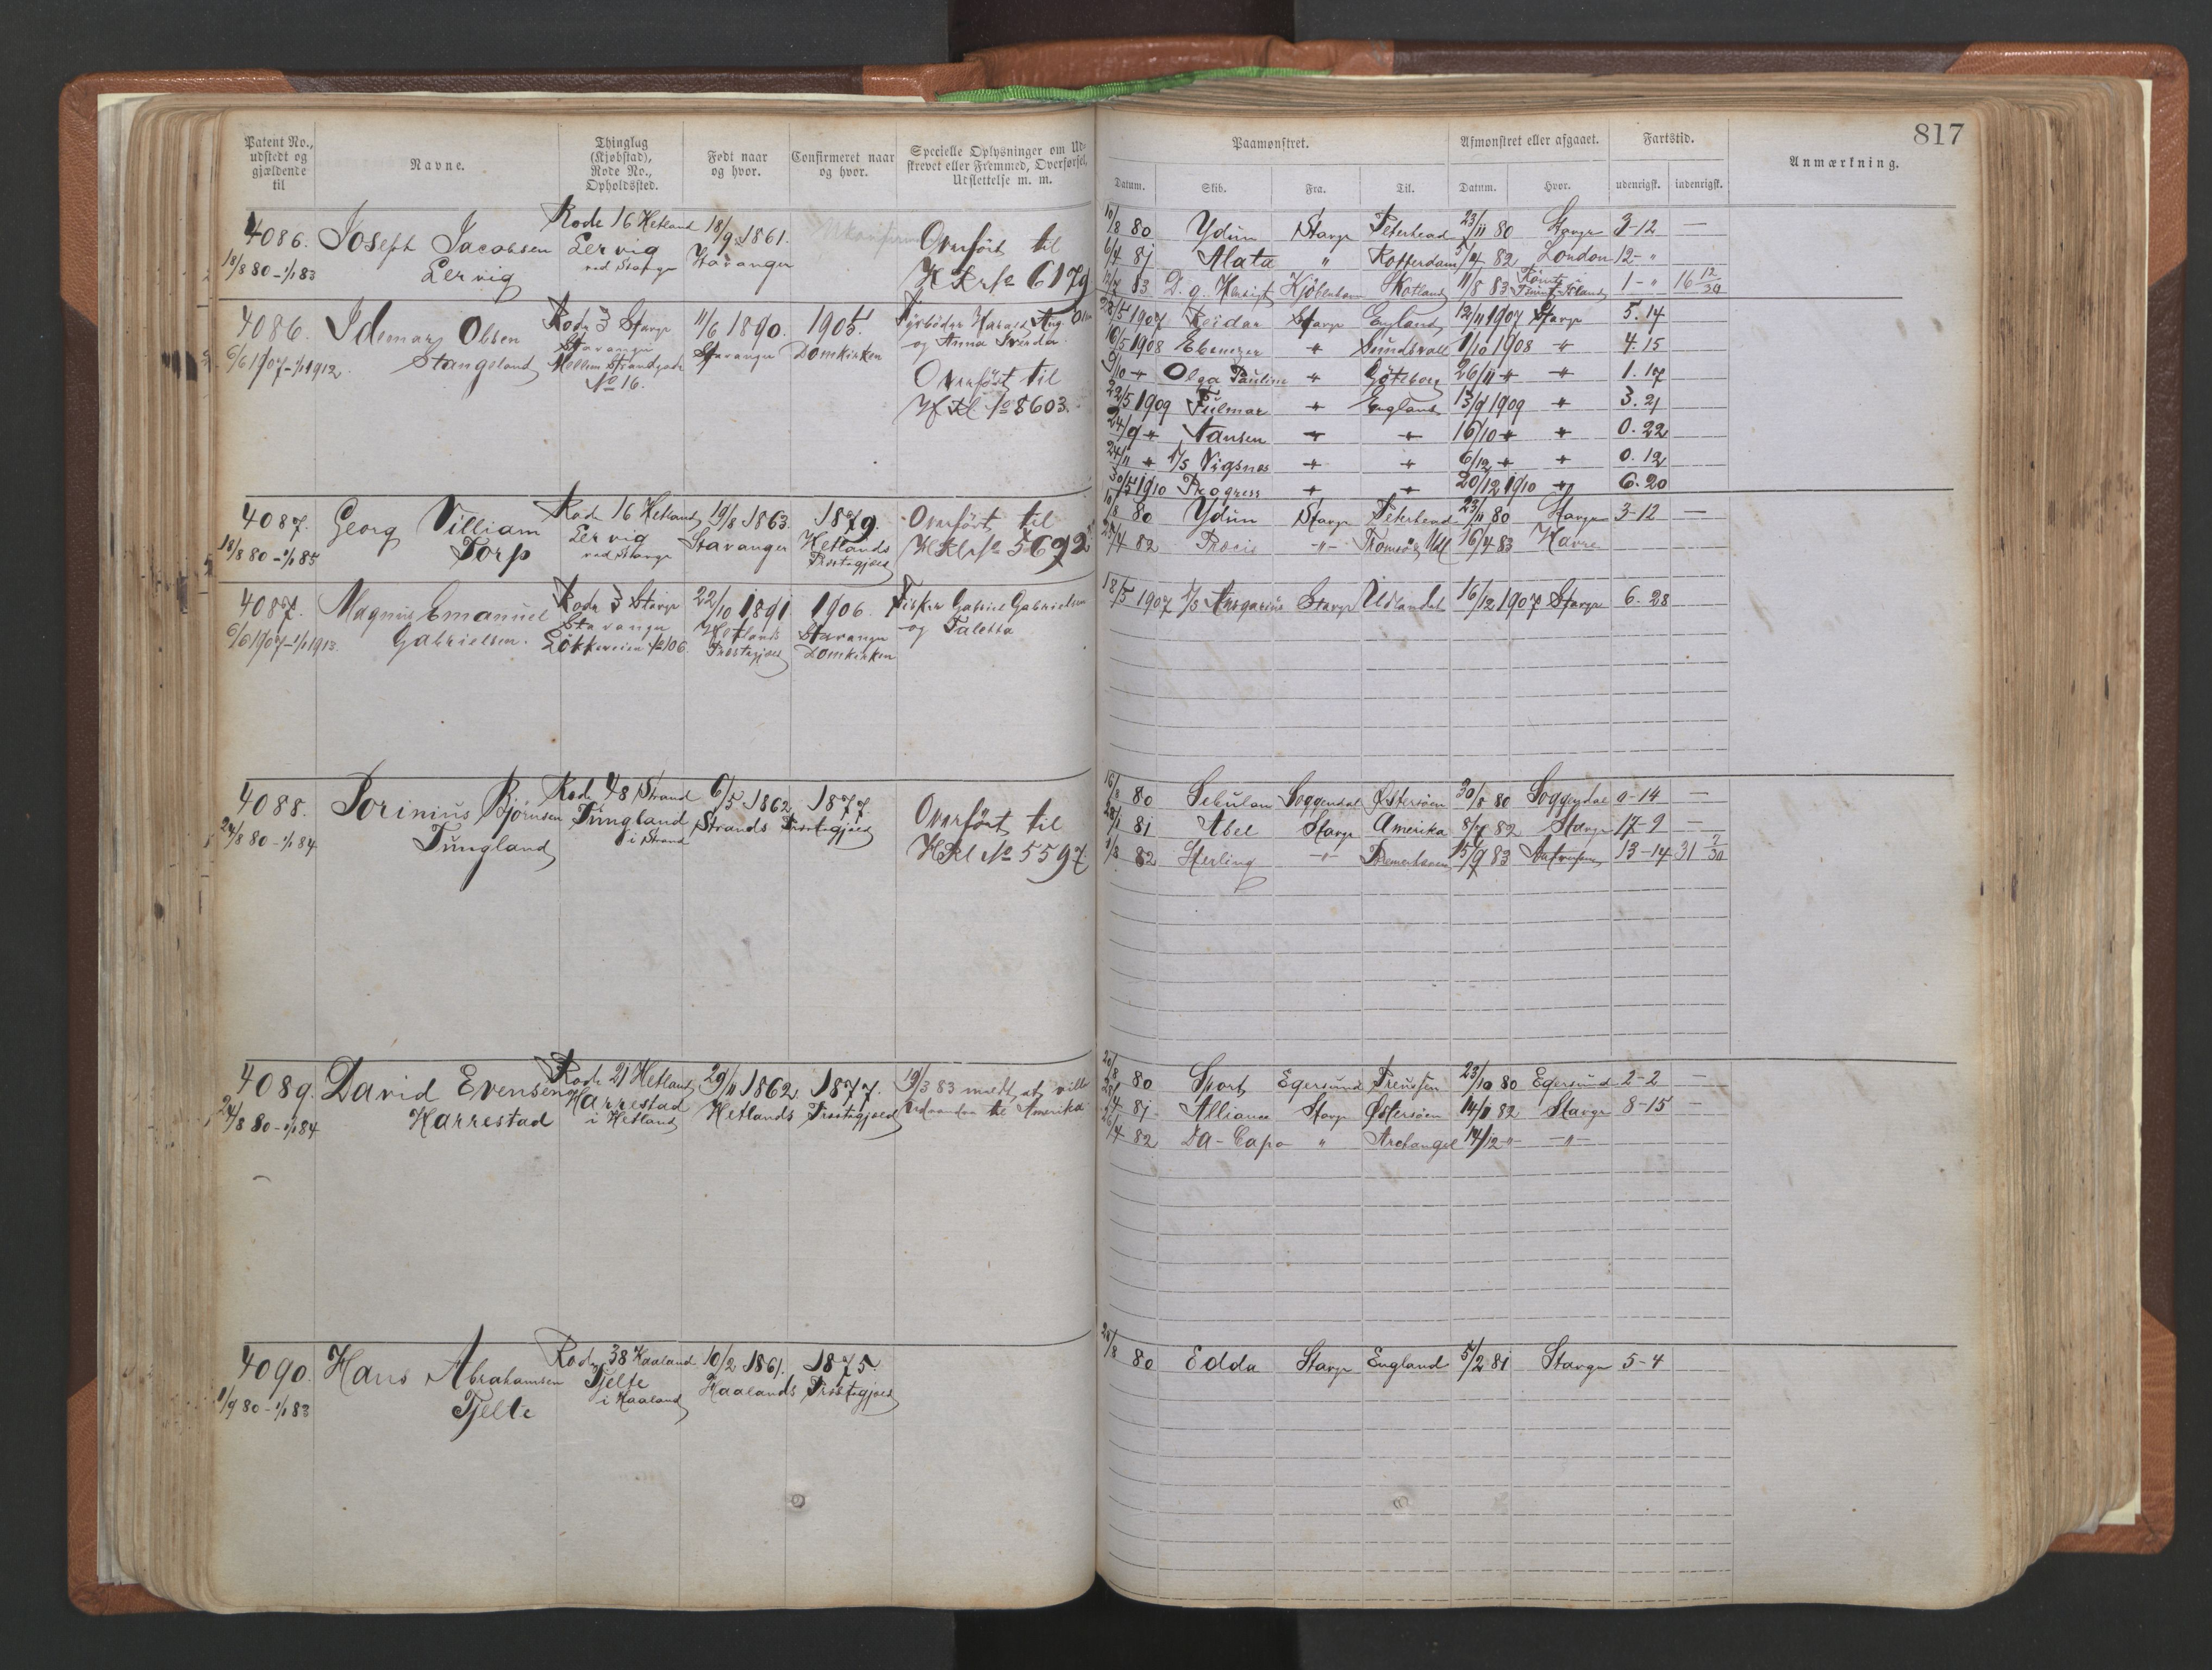 817
Patent No., udstedt og gjældende til
Navne.
Thinglag (Kjøbstad), Rode No., Opholdssted.
Født naar og hvor.
Confirmeret naar og hvor.
Specielle Oplysninger om Udskrevet eller Fremmed, Overførsel, Udslettelse m. m.
Paamønstret.
Afmønstret eller afgaaet.
Fartstid.
Anmærkning.
Datum. Skib. Fra. Til. Datum. Hvor. udenrigsk. indenrigsk.
4086. Joseph Jacobsen Rode 16 Hetland 18/9 1861. Overført til
18/8 80 - 1/1 83 Lervig Lervig ved Stavgr Stavanger H Rl № 6179
10/8 80 Ydun Stavgr Peterhead 23/11 80 Stavgr 3-12 —
6/4 81 Alata " Rotterdam 5/4 82 London 12- "
12/7 83 Kjöbenhavn Skotland 11/8 83 1 - " 16 12/30
4086. Idemar Olsen Rode 3 Stavgr 11/6 1890. 1905. Fyrbøder Harald Aug. Olsen
6/6 1907 - 1/1 1912. Stangeland Stavanger Stavanger Domkirken og Anna
Mellem Strandgade
No 16.
Overført til
H Rl № 8603.
28/5 1907 Reidar Stavgr England 12/11 1907 Stavgr 5. 14
16/5 1908 Ebenezer " Sundsvall 1/10 1908 " 4. 15
9/10 " Olga Pauline " Göteborg 26/11 " " 1. 17
22/5 1909 Fulmar " England 13/9 1909 " 3. 21
24/9 " Nansen " " 16/10 " " 0. 22
24/11 " D/S Vigsnes " " 6/12 " " 0. 12
30/5 1910 Progress " " 20/12 1910 " 6. 20
4087. Georg Villiam Rode 16 Hetland 19/8 1863. 1879. Overført til
18/8 80 - 1/1 85 Torp Lervig ved Stavgr Stavanger Hetlands Præstegjæld H Rl № 5692
10/8 80 Ydun Stavgr Peterhead 23/11 80 Stavgr 3-12 —
25/4 82 " Tromsø & Udl 16/4 83 Havre
4087. Magnus Emanuel Rode 3 Stavgr 22/10 1891. 1906. Fisker Gabriel Gabrielsen
6/6 1907 - 1/1 1913. Gabrielsen. Stavanger Hetlands Stavanger og Taletta
Løkkeveien № 106. Præstegjæld Domkirken
18/5 1907 D/S Ansgarius Stavgr Udlandet 16/12 1907 Stavgr 6. 28
4088. Sorinius Bjørnsen Rode 48 Strand 6/5 1862. 1877. Overført til
24/8 80 - 1/1 84 Tungland Tungland i Strand Strands Præstegjæld H Rl № 5597.
16/8 80 Sebulon Soggendal Østersøen 30/8 80 Soggendal 0-14 —
28/1 81 Abel Stavgr Amerika 8/7 82 Stavgr 17-9 —
1/8 82 Sterling " Bremerhaven 15/9 83 13-14 31 7/30
4089. David Evensen Rode 21 Hetland 29/11 1862. 1877. 19/3 83 meldt, at ville
24/8 80 - 1/1 84 Harrestad Harrestad i Hetland Hetlands Præstegjæld udvandre til Amerika
20/8 80 Sport Egersund Preussen 23/10 80 Egersund 2-2 —
28/4 81 Alliance Stavgr Østersøen 14/1 82 Stavgr 8-15 —
26/4 82 Da-Capo " Archangel 14/12 " "
4090. Hans Abrahamsen Rode 38 Haaland 10/2 1861. 1875.
1/9 80 - 1/1 83 Tjelte Tjelte i Haaland Haalands Præstegjæld
28/8 80 Edda Stavgr England 5/2 81 Stavgr 5-4